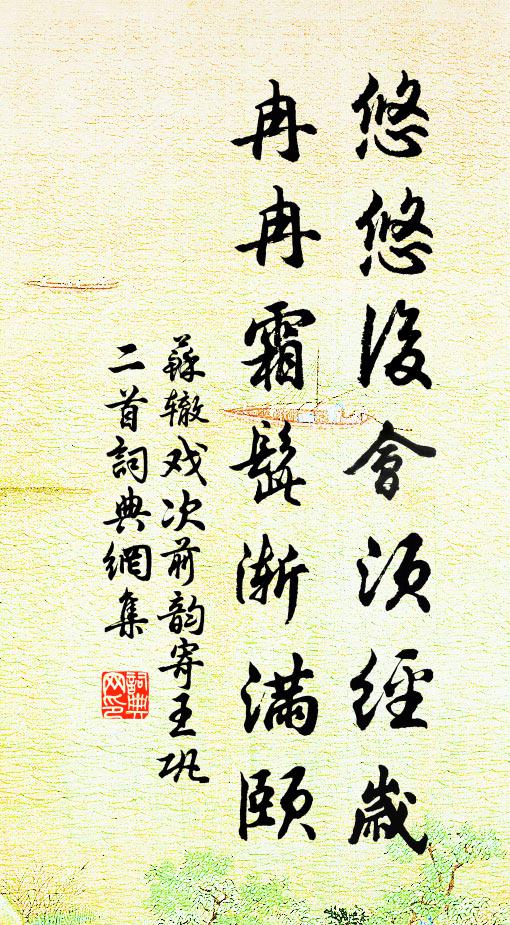 悠悠後會須經歲
冉冉霜髭漸滿頤
蘇辙戏次前韵寄王巩
二首詞典網集
詞典
网印